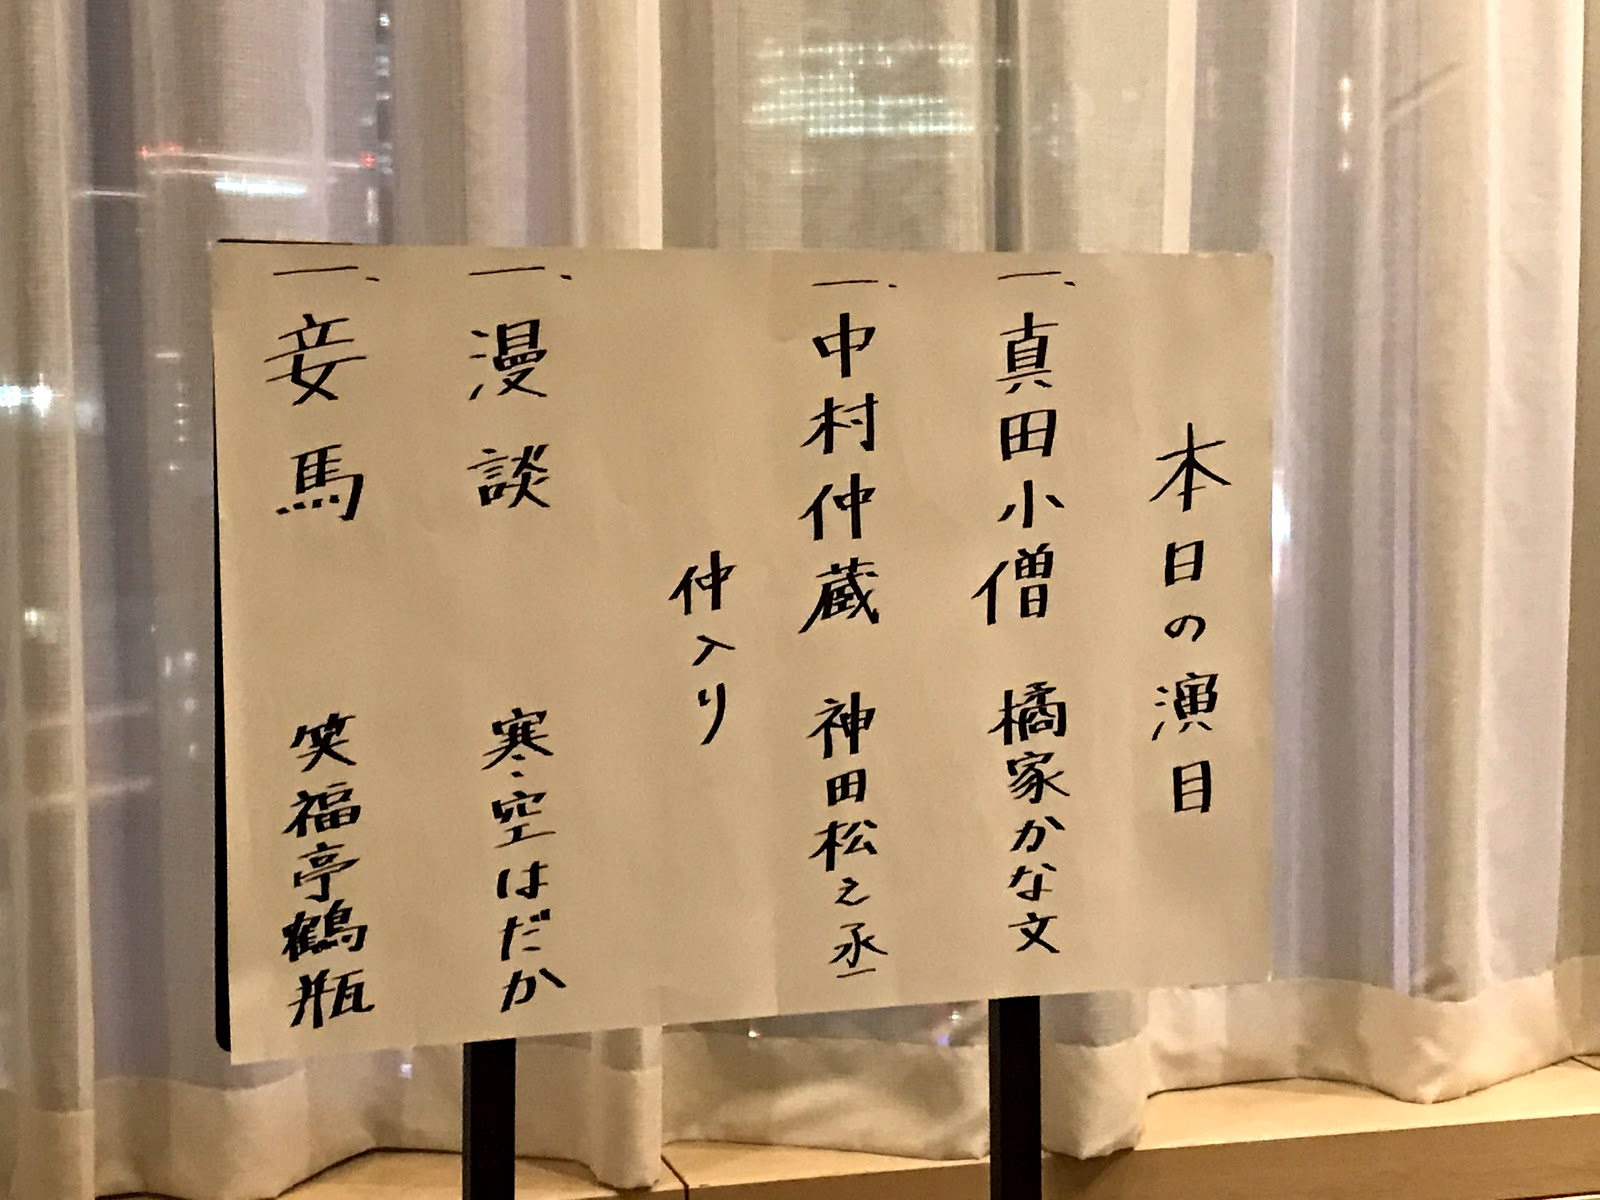 本日の演目
一、真田小僧 橘家かな文
一、中村仲蔵 神田松之丞
仲入り
一、漫談 寒空はだか
一、妾馬 笑福亭鶴瓶